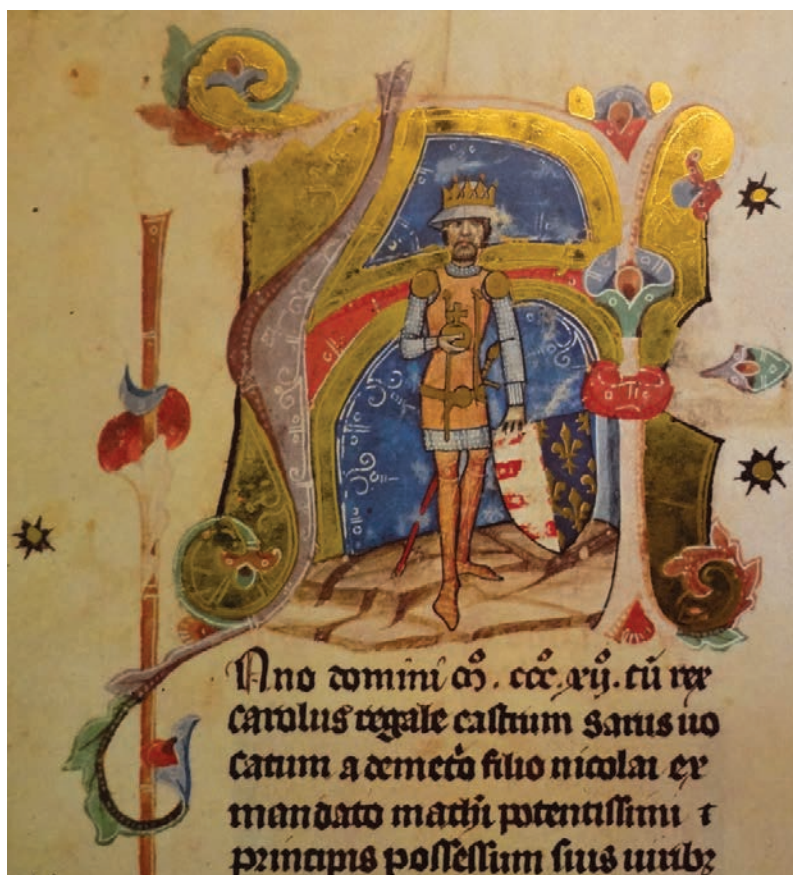 Anno domini Mͦ. cccͦ. xijͦ. cū rex
carolus regale castrum Sarus uo
catum a demetͦo filio nicolai ex
mandato mathi potentissimi ⁊
principis possessum suis uiribꝫ